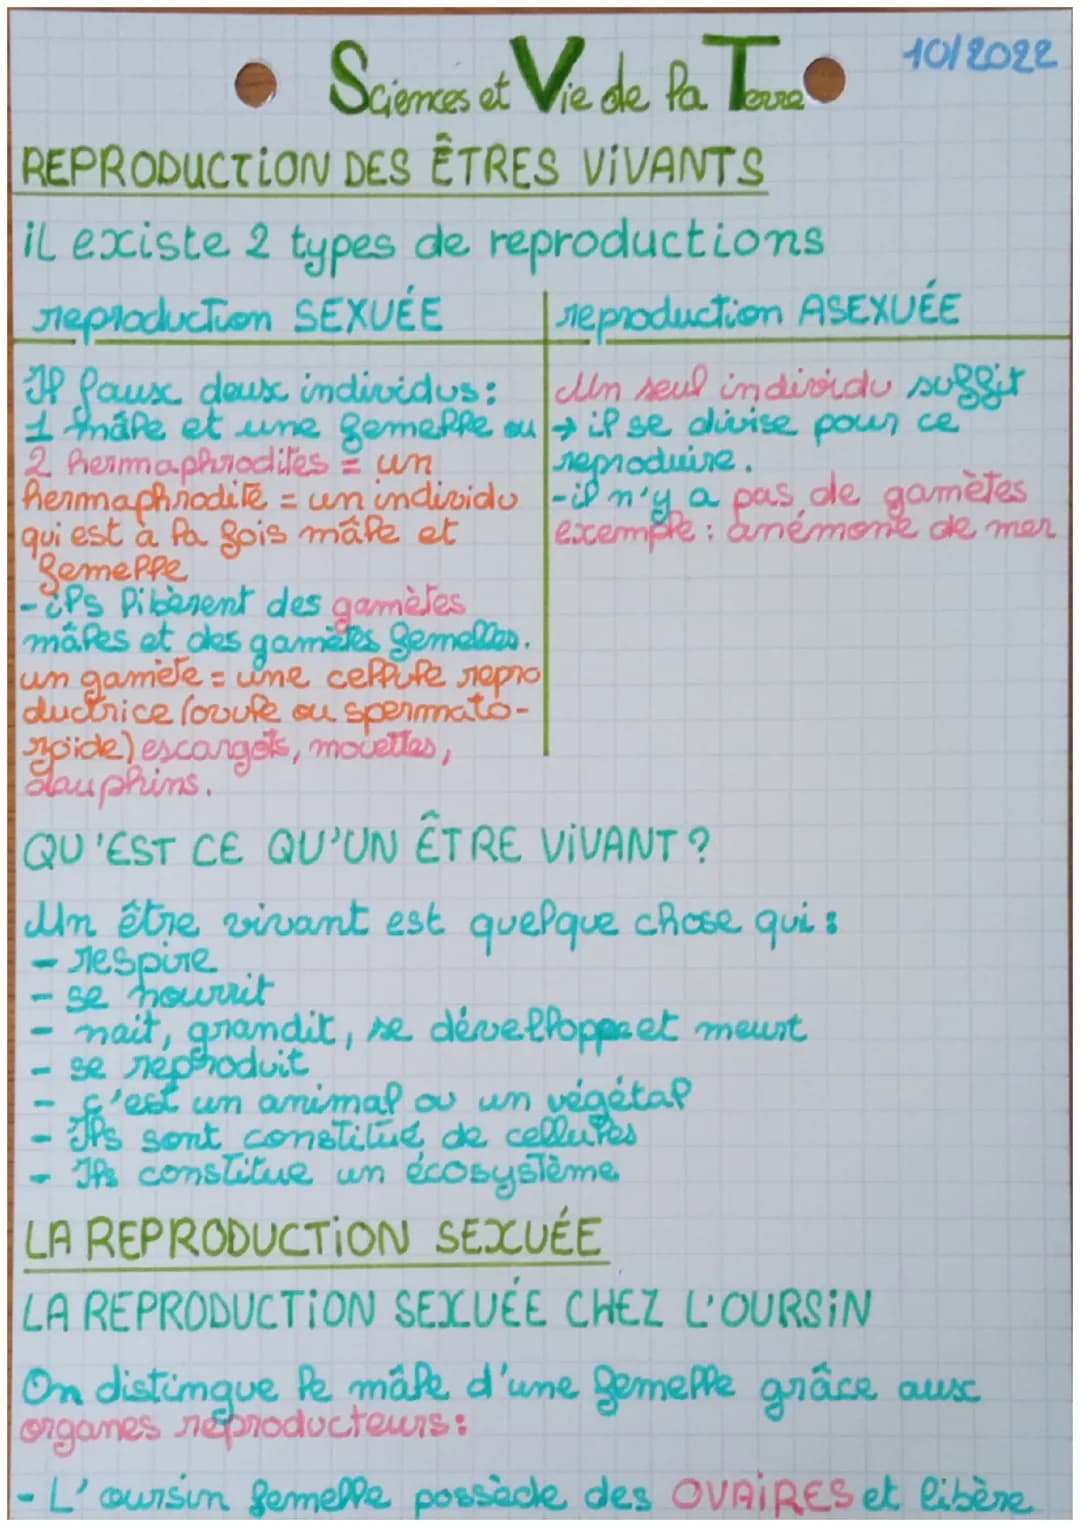 Sciences et Vie de la Terre
10/2022
REPRODUCTION DES ÊTRES VIVANTS
il existe 2 types de reproductions
reproduction SEXUÉE
Il faux deux individus:
1 mâle et une femelle ou
2 hermaphrodites = un
hermaphrodite = un individu
qui est à la fois mâle et
femelle
- ils libèrent des gamètes
mâles et des gamètes femelles.
un gamète = une cellule repro
ductrice (ovule ou spermato-
zoïde) escargots, mouettes,
dauphins.
reproduction ASEXUÉE
Un seul individu suffit
→ il se divise pour ce
reproduire.
- il n'y a pas de gamètes
exemple : anémone de mer
QU'EST CE QU'UN ÊTRE VIVANT ?
Un être vivant est quelque chose qui :
- respire
- se nourrit
- nait, grandit, se dévelloppe et meurt
- se reproduit
- c'est un animal ou un végétal
- Ils sont constitué de cellules
- Ils constitue un écosystème
LA REPRODUCTION SEXUÉE
LA REPRODUCTION SEXUÉE CHEZ L'OURSIN
On distingue le mâle d'une femelle grâce aux
organes reproducteurs :
- L'oursin femelle possède des OVAIRES et libère